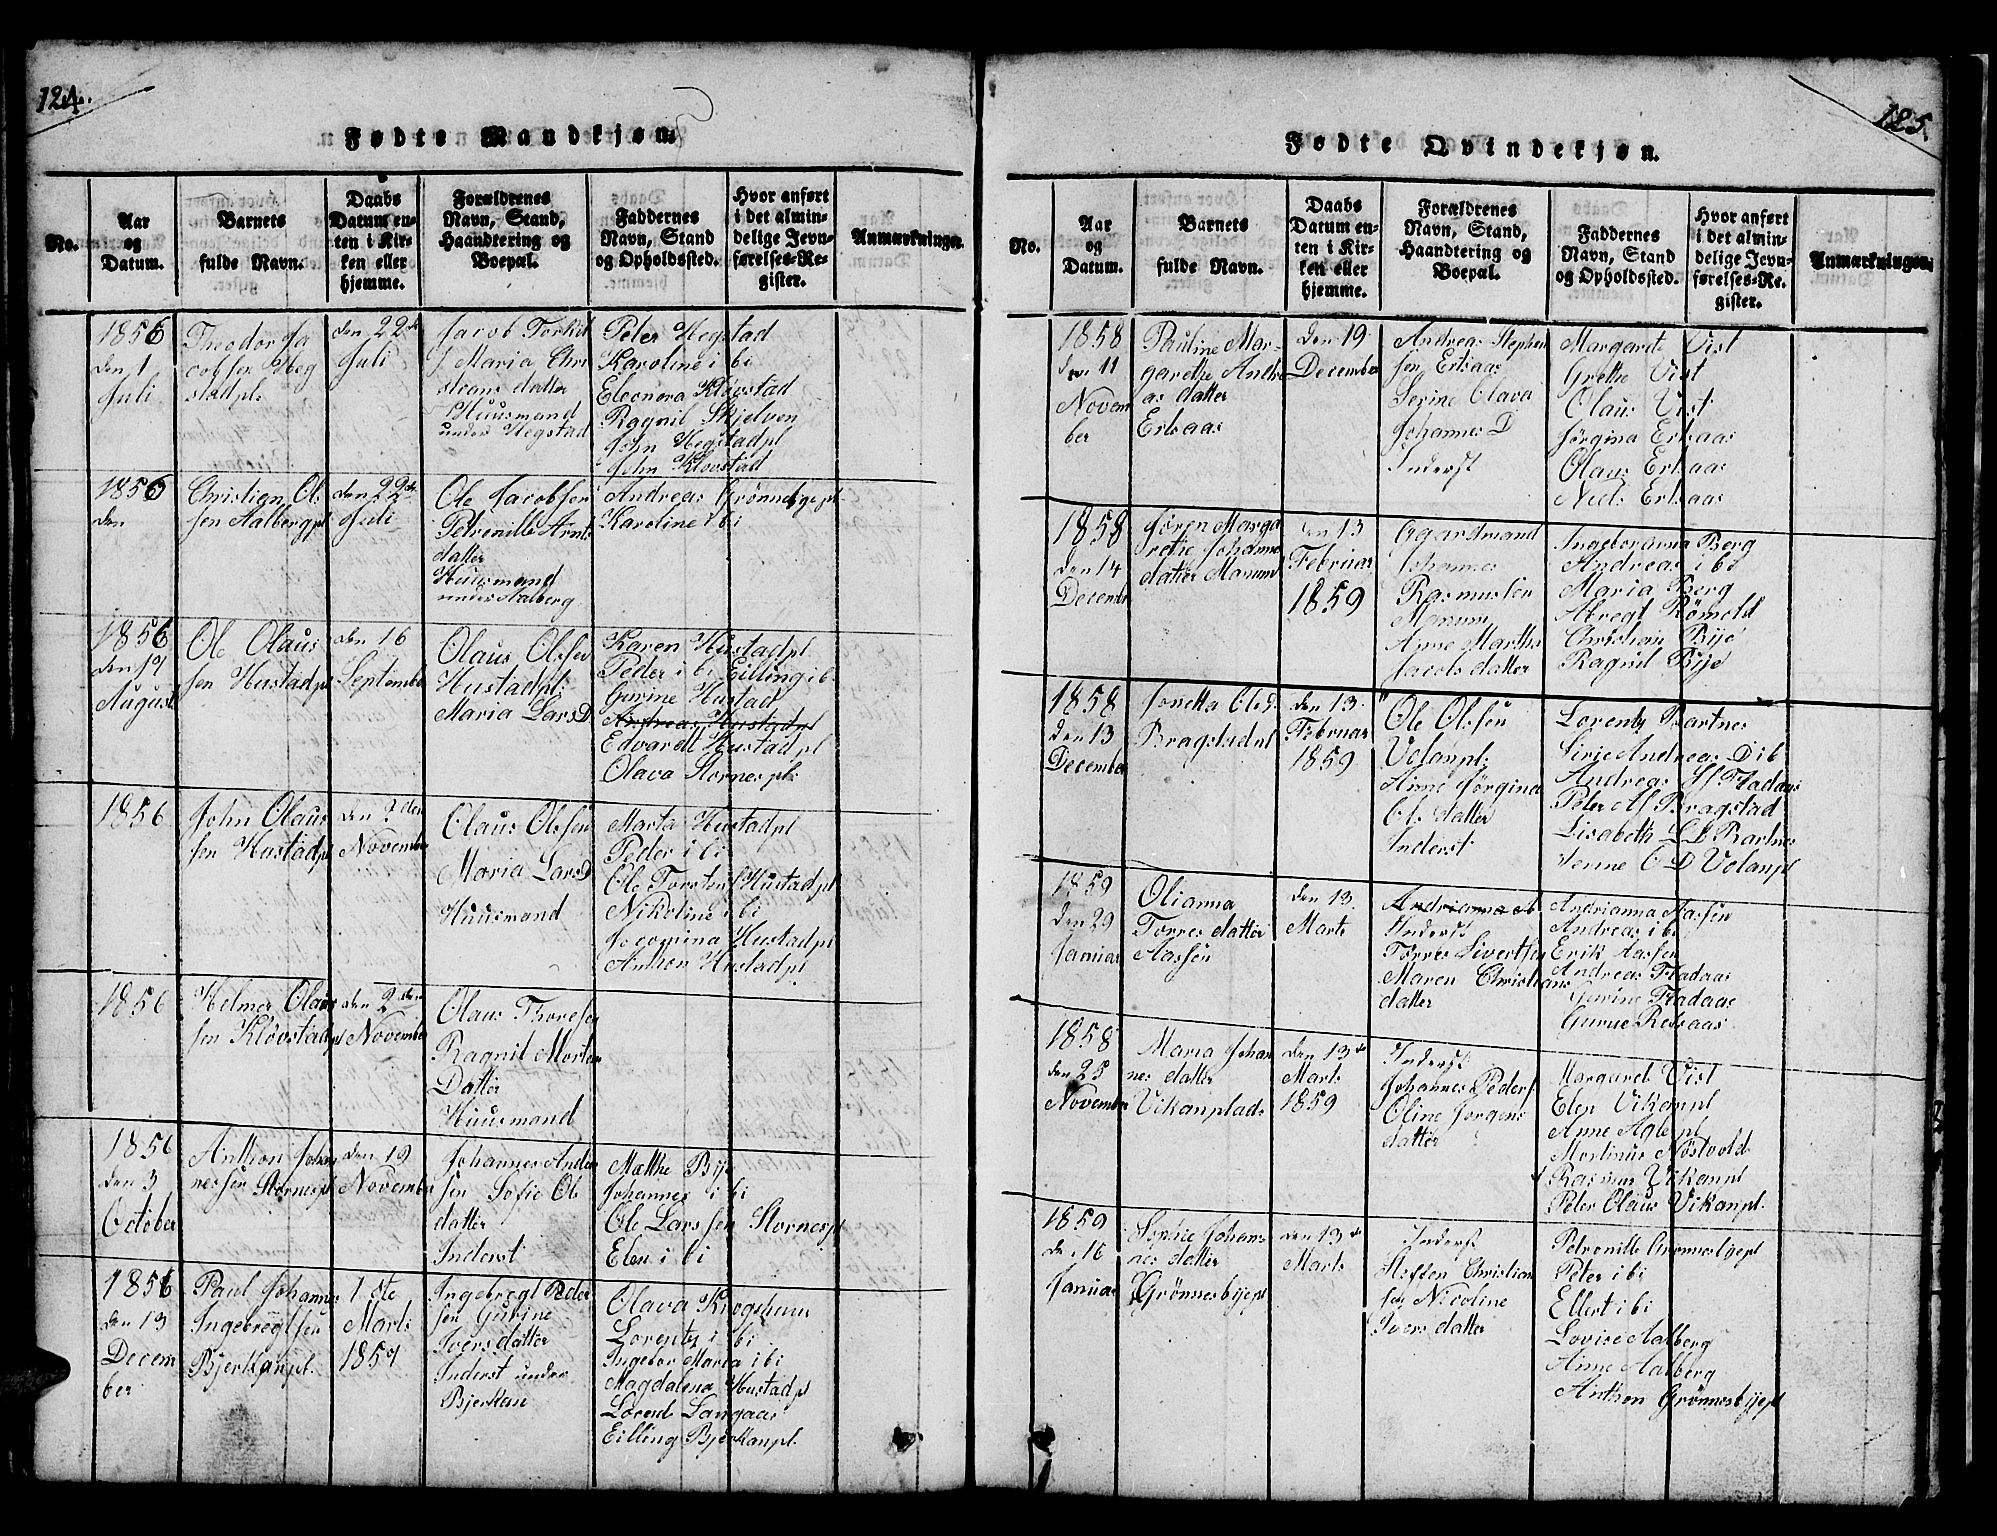 124.
Fødte Mandkjøn.
No.
Aar
og
Datum.
Barnets
fulde Navn.
Daabs
Datum en-
ten i Kir-
ken eller
hjemme.
Forældrenes
Navn, Stand,
Haandtering og
Boepæl.
Faddernes
Navn, Stand
og Opholdssted.
Hvor anført
i det almin-
delige Jevn-
førelses-Re-
gister.
Anmærkninger.
1856
den 1
Juli
Theodor Ja
cobsen Heg
stadpl.
den 22de
Juli
Jacob Torkil
Maria Chri
stians datter
Huusmand
under Hegstad
Peter Hegstad
Karoline i bi
Eleonora Kløvstad
Ragnil Skjelven
John Hegstadpl
John Kløvstad
1856
den
Christian Ol
sen Aalbergpl
den 22de
Juli
Ole Jacobsen
Petrenille Arnts
datter
Huusmand
under Aalberg
Andreas Grønnesbyepl
Karoline i bi
1856
den 17
August
Ole Olaus
sen Hustadpl
den 16
September
Olaus Olsen
Hustadpl:
Maria Lars D
Karen Hustadpl
Peder i bi Eilling i b
Gurine Hustad
Andreas Hustadpl
Edvardt Hustad pl
Olava Stornespl:
1856
John Olaus
sen Hustadpl
den 2den
November
Olaus Olsen
Maria Lars D
Huusmand
Marta Hustadpl
Peder i bi
Ole Torsten Hustadpl
Nikoline i bi
Jocomina Hustadpl
Anthon Hustadpl
1856
Helmer Olaus
sen Kløvstadpl
den 2den
November
Olaus Thoresen
Ragnil Morten
Datter
Huusmand
1856
den 3
October
Anthon Johan
nessen Stornespl
den 19
November
Johannes Ander
sen Sofie Ole
datter
Inderst
Mæthe Bye
Johannes i bi
Ole Larssen Stornespl
Elen i bi
1856
den 13
Decem
ber
Paul Johannes
Ingebregtsen
Bjerkanpl.
1ste
Marts
1857
Ingebregt Peder
sen Gurine
Ivers datter
Inderst under
Bjerkan
Olava Krogshuus
Lorentz i bi
Ingebor Maria i bi
Magdalena Hustadpl
Lorends Langaas
Eilling Bjerkanpl.
125.
Fødte Qvindekjøn.
No.
Aar
og
Datum.
Barnets
fulde Navn.
Daabs
Datum en-
ten i Kir-
ken eller
hjemme.
Forældrenes
Navn, Stand,
Haandtering og
Boepæl.
Faddernes
Navn, Stand
og Opholdssted.
Hvor anført
i det almin-
delige Jevn-
førelses-Re-
gister.
Anmærkninger.
1858
den 11
Novem
ber
Pauline Mar-
garethe Andre
as datter
Ertsaas
den 19
December
Andreas Stephen
sen Ertsaas
Serine Olava
Johannes D
Inderst
Margarete Vist
Grethe Vist
Olaus Vist
Jørgina Ertsaas
Olaus Ertsaas
Niels Ertsaas
1858
den 14
December
Jøren Marga
rette Johanne
datter Marum
den 13
Februar
1859
Gaardmand
Johannes
Rasmussen
Marum
Anne Martha
Jacobs datter
Ingeboranna Berg
Andreas i bi
Maria Berg
Abregt Römold
Christian Bye
Ragnil Bye
1858
den 13
December
Jonetta Ols d.
Bragstadpl
den 13.
Februar
1859
Ole Olsen
Volanpl:
Anne Jørgina
Ols datter
Inderst
Lorentz Bartnes
Sirie Andreas D i b
Andreas Hs Fladaas
Peter A Bragstad
Lisabeth L D Bartnes
Jenne O D Volanpl
1859
den 29
Januar
Olianna
Torres datter
Aassen
den 13.
Marts
Andrianna A
Inderst
Torres Sivertsen
Maren Christians
datter
Andrianna Aassen
Andreas i bi
Erik Aassen
Andreas Fladaas
Gurine Fladaas
Gurue Retsaas
1858
den 25
November
Maria Johan
nes datter
Vikanplads
den 13de
Marts
1859
Inderst
Johannes Peders
Oline Jørgens
datter
Margarete Vist
Elen Vikanpl
Anne Aglepl
Martinus Nöstvold
Rasmus Vikanpl
Peter Olaus Vikanpl.
1859
den 16
Januar
Sophie Johan-
nes datter
Grønnesbyepl
den 13de
Marts
Inderst
Steffen Christian
sen Nicoline
Ivers datter
Petronille Grønnesbyepl
Peter i bi
Ellert i bi
Lovise Aalberg
Anne Aalberg
Anthon Grønnesbyepl